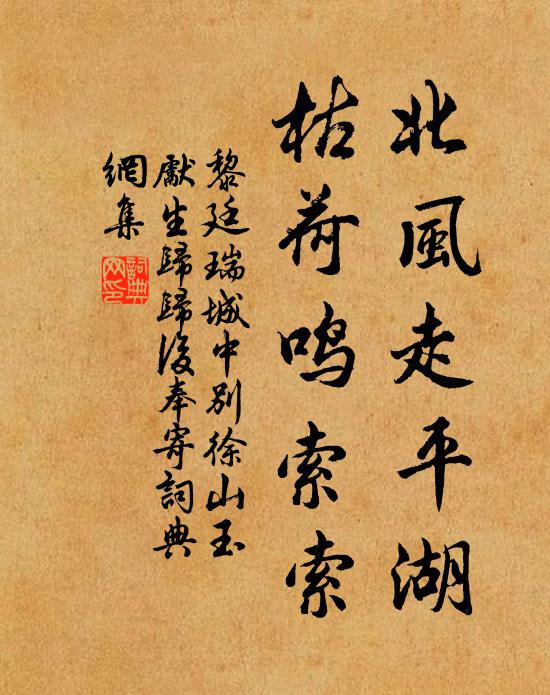 北風走平湖
枯荷鸣索索
黎廷瑞城中别徐山玉
獻生歸歸後奉寄詞典
網集
詞典
网印